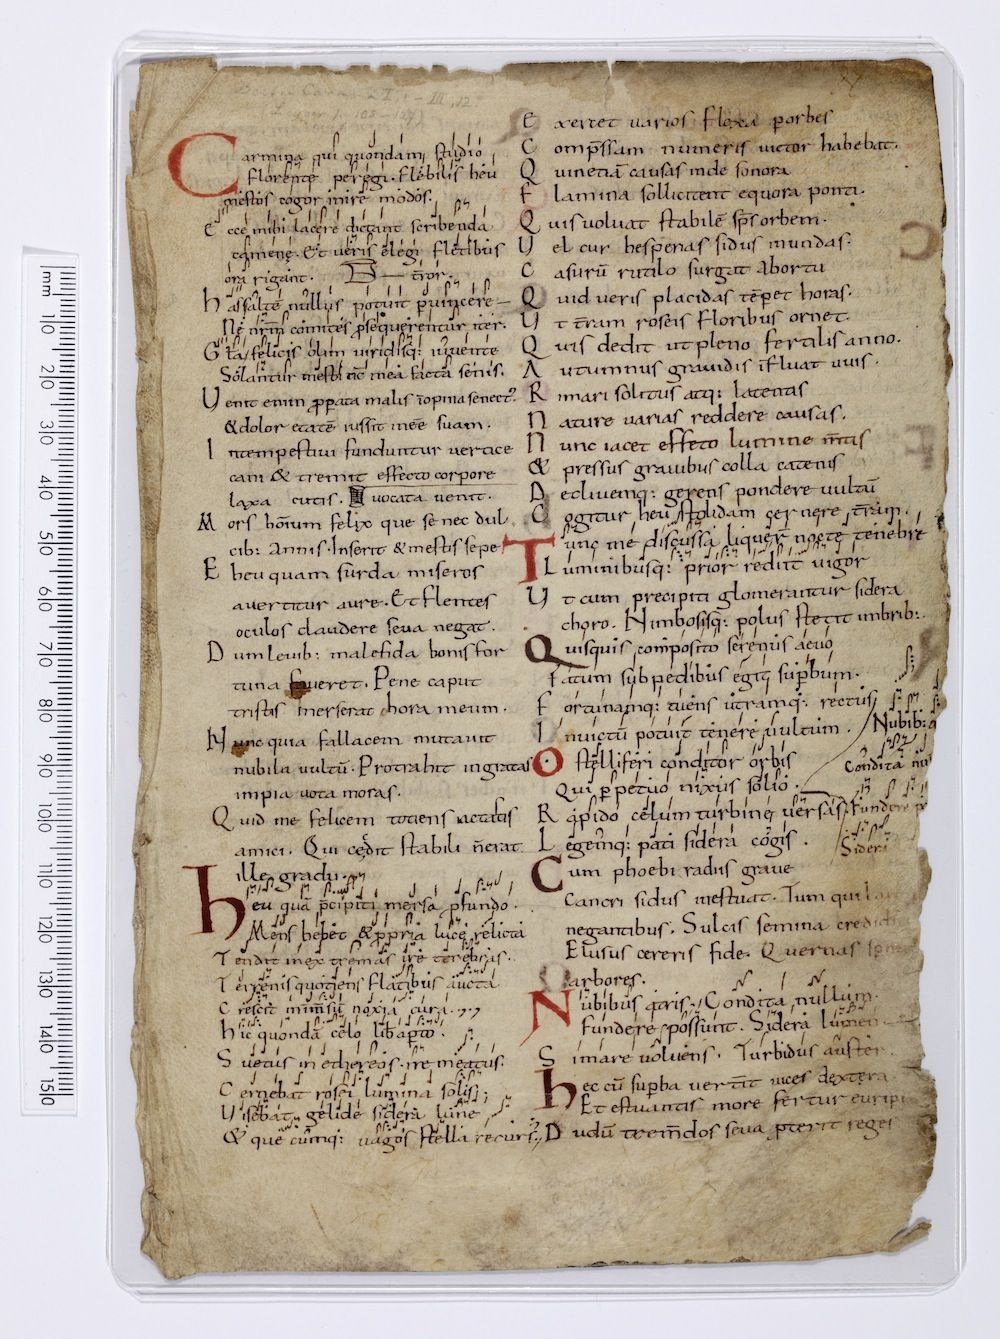 Carmina qui quondam studio
florente peregi. Flebilis heu
mestos cogor inire modos.
Ecce mihi lacere dictant scribenda
camene. Et ueris elegi fletibus
ora rigant. tror.
has saltē nullus potuit puincere
Ne nrm comites psequerentur iter.
Gła felicis olim uiridisq: iuuente
Solantur mesti nc mea facta senis.
Uenit enim pperata malis inopina senect?
& dolor etatē iussit inee suam.
Intempestiui funduntur uertice
cani & tremit effecto corpore
laxa cutis. uocata uenit.
Mors hōium felix que se nec dul
cib: Annis. Inserit & mestis sepe
Eheu quam surda miseros
auertitur aure. Et flentes
oculos claudere seua negat.
Dum leuib: malefida bonis for
tuna faueret. Pene caput
tristis merserat hora meum.
Nunc quia fallacem mutauit
nubila uultū. Protrahit ingratas
impia uota moras.
Quid me felicem totiens iactastis
amici. Qui cecidit stabili n̄ erat
ille gradu.
heu quā pcipiti mersa pfundo.
Mens hebet & ppria luce relicta
Tendit in extremas ire tenebras.
Terrenis quotiens flatibus aucta
Crescit inmsū noxia cura.
hic quondā celo lib apto.
Suetus in ethereos ire meatus.
Cernebat rosei lumina solis;
Uisebat gelide sidera lune
& que cūmq: uagos stella recurs?
Exercet varios flexa porbes
Compssam numeris uictor habebat.
Quinetiā causas unde sonora
Flamina sollicitent equora ponti.
Quis voluat stabilē sps orbem.
Uel cur hesperias sidus in undas.
Casurū rutilo surgat Abortu
Quid veris placidas tēpet horas.
Ut tram roseis floribus ornet.
Quis dedit ut pleno fertilis anno.
Autumnus grauidis ifluat uuis.
Rimari solitus atq: latentis
Nature varias reddere causas.
Nunc iacet effeto lumine mtis
& pressus grauibus colla catenis
Decliuemq: gerens pondere uultū
Cogitur heu stolidam cernere tram.
Tunc me discussa liquer nocte tenebre
Luminibusq: prior rediit uigor
Ut cum precipiti glomerantur sidera
choro. Nimbosisq: polus stetit imbrib:
Quisquis composito serenus aeuo
Fatum sub pedibus egit supbum.
Fortunamq: tuens utramq: rectus
Inuictū potuit tenere uultum.
O stelliferi conditor orbis
Qui ppetuo nixus solio.
Rapido celum turbine uersas
Legemq: pati sidera cogis.
Cum phoebi radiis graue
Cancri sidus inestuat. Tum qui
negantibus. Sulcis semina
Elusus cereris fide. Quernas
arbores.
Nubibus atris. Condita nullum.
Fundere possunt. Sidera lumen
Simare uoluens. Turbidus auster.
hec cū supba uertit uices dextera
Et estuantis more fertur euripi
Dudū tremdos seua pterit reges
Nubib:
Condita
Fundere
Sideri